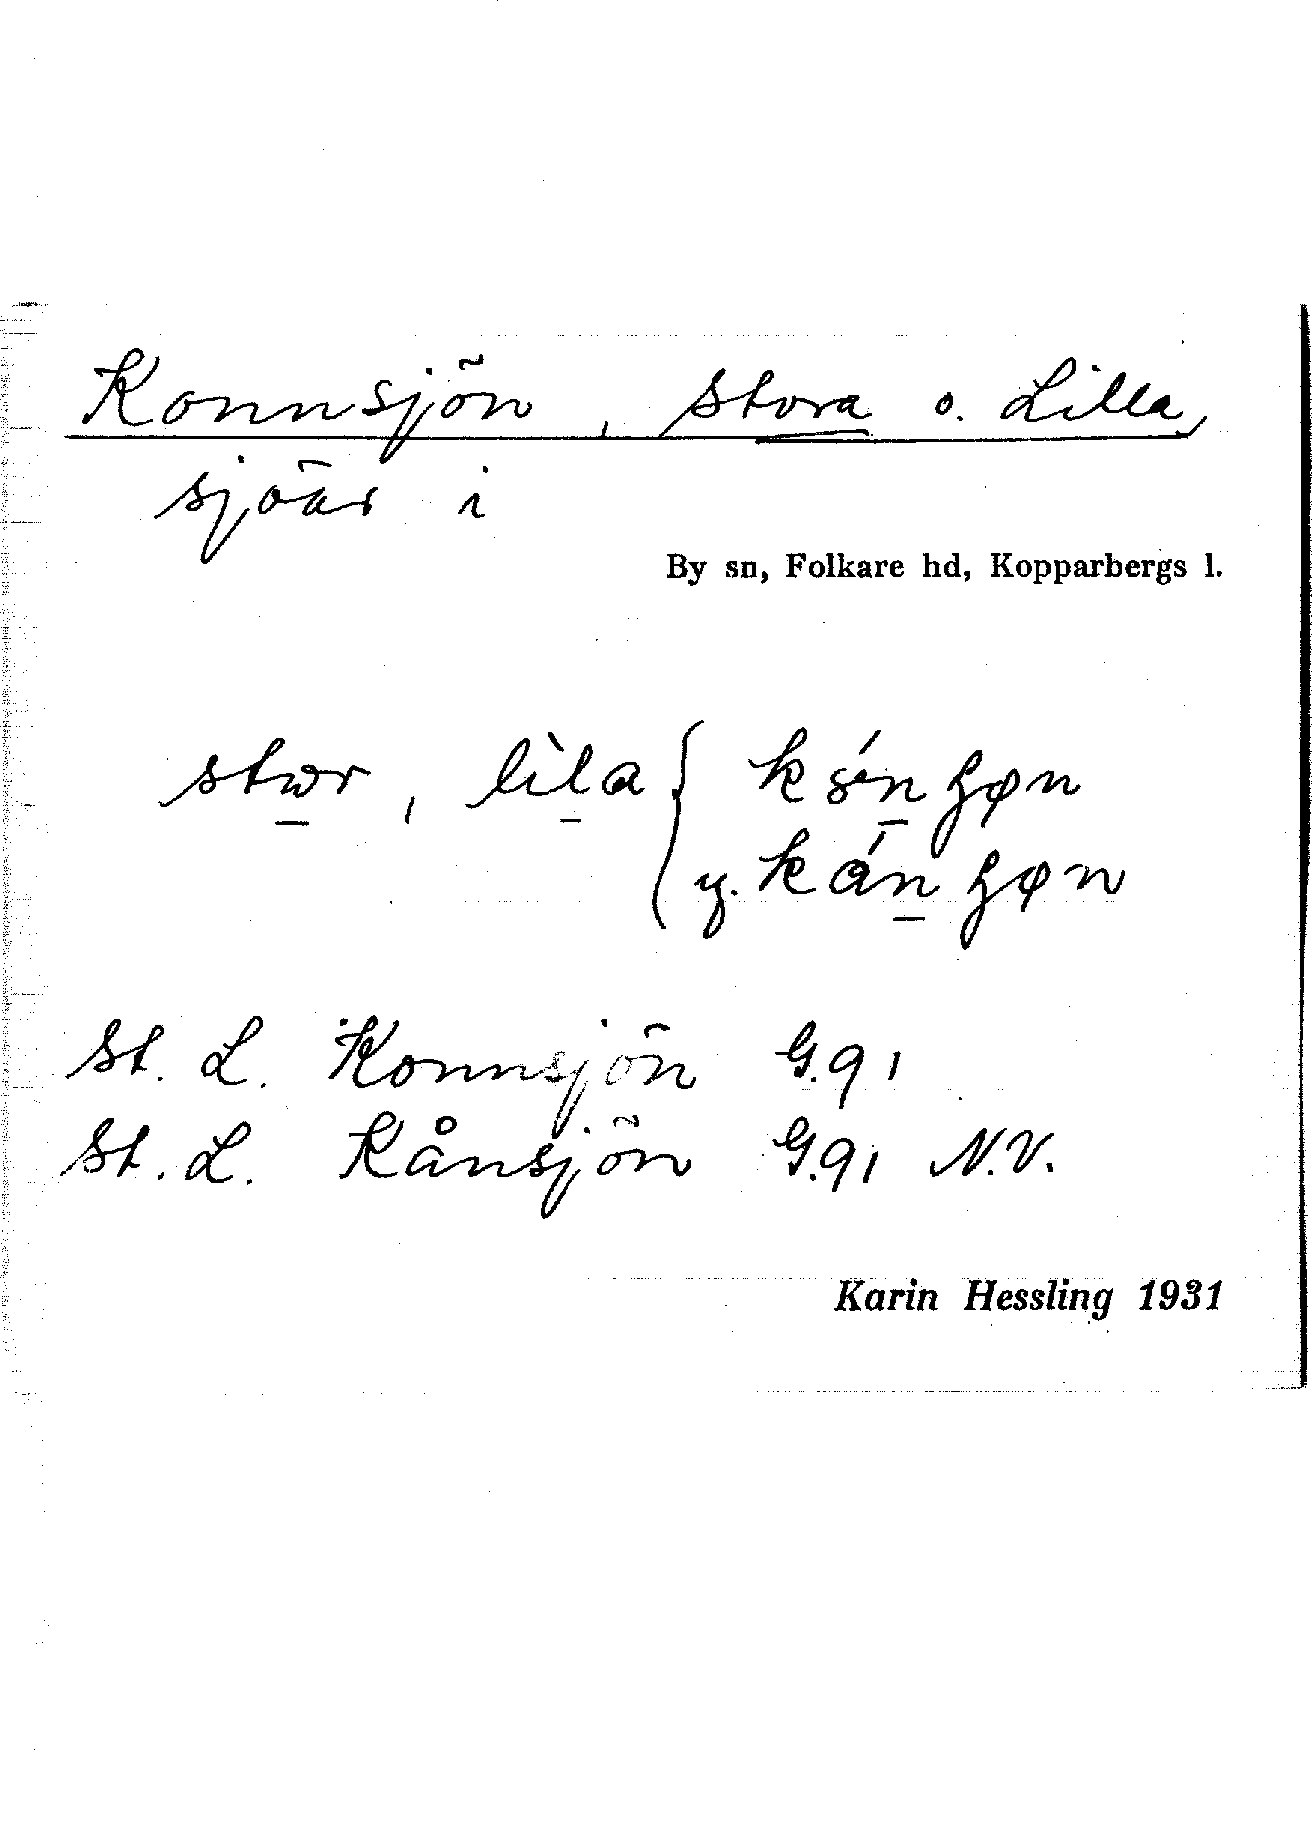 Konnsjön, Stora o. Lilla,
sjöar i
By sn, Folkare hd, Kopparbergs l.
lìla
y.
St. L. Konnsjön G.91
St. L. Kånsjön G.91 N.V.
Karin Hessling 1931